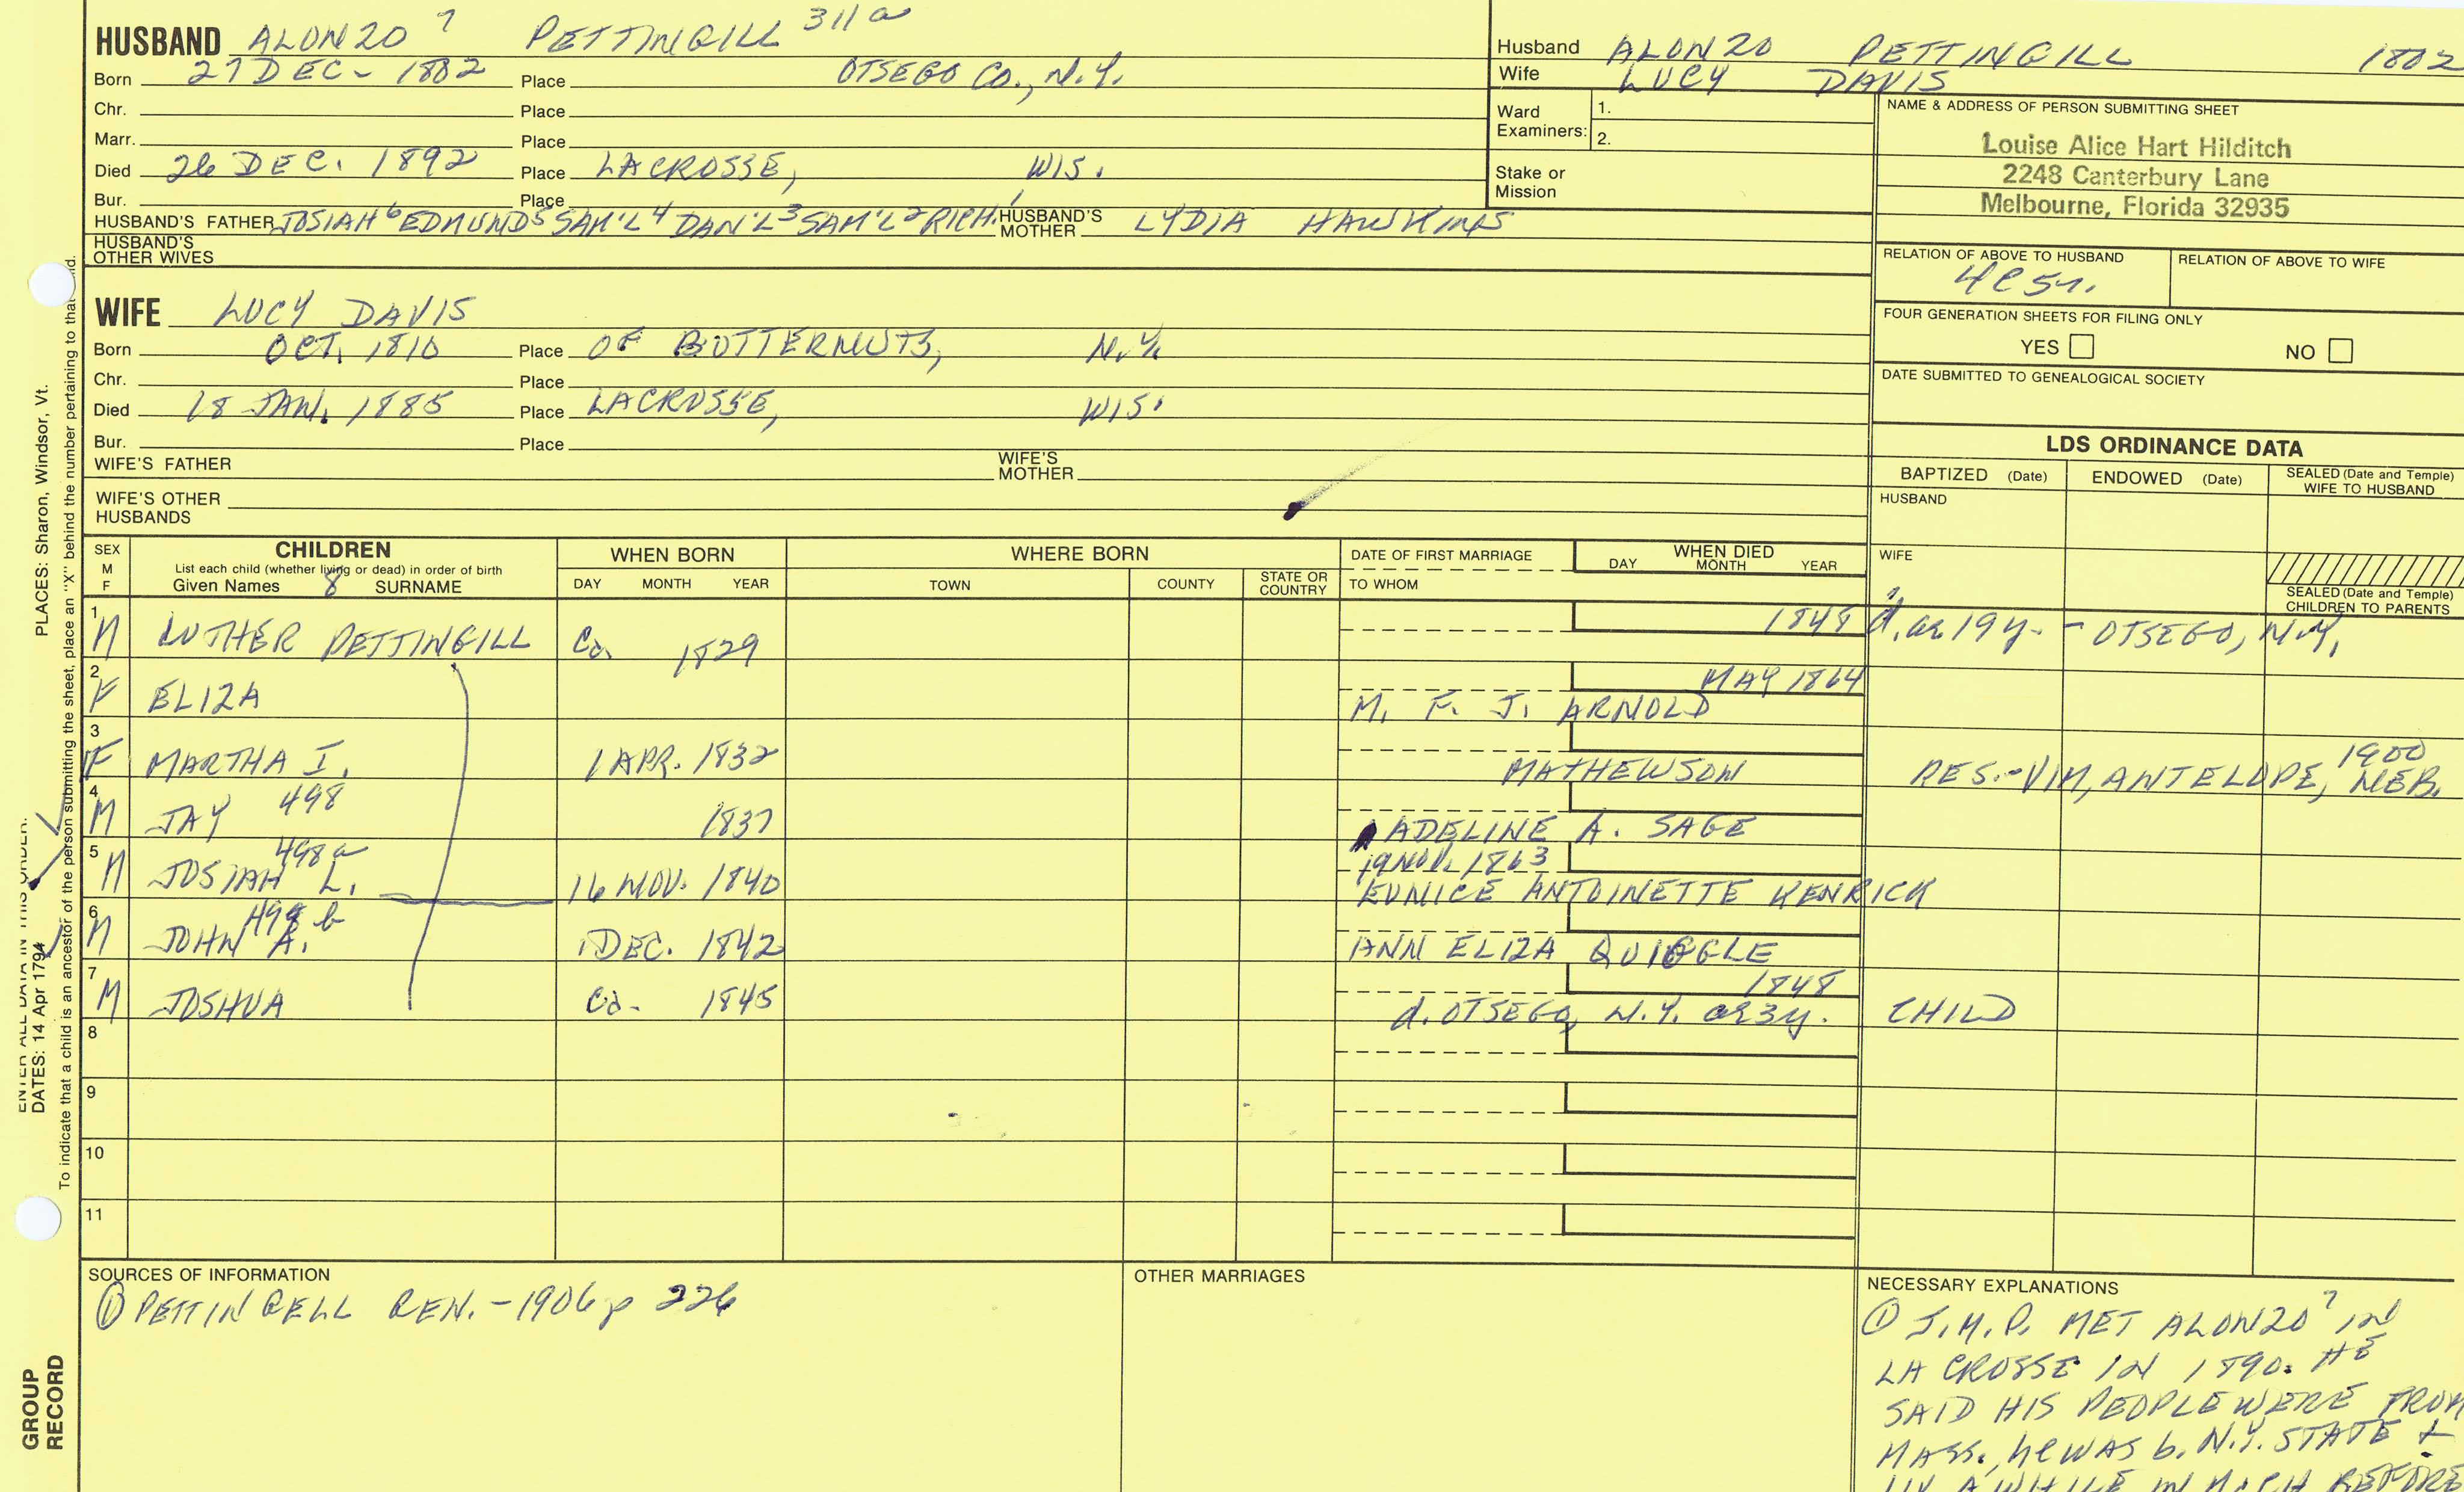 HUSBAND ALONZO 7 PETTINGILL 311a
Born 27 DEC - 1802 Place OTSEGO CO., N.Y.
Chr. Place
Marr. Place
Died 26 DEC. 1892 Place LACROSSE, WIS.
Bur. Place
HUSBAND'S FATHER JOSIAH 6 EDMUND 5 SAM'L 4 DAN'L 3 SAM'L 2 RICH. 1 HUSBAND'S MOTHER LYDIA HAWKINS
HUSBAND'S OTHER WIVES
Husband ALONZO PETTINGILL 1802
Wife LUCY DAVIS
Ward Examiners: 1.
2.
Stake or Mission
NAME & ADDRESS OF PERSON SUBMITTING SHEET
Louise Alice Hart Hilditch
2248 Canterbury Lane
Melbourne, Florida 32935
RELATION OF ABOVE TO HUSBAND RELATION OF ABOVE TO WIFE
FOUR GENERATION SHEETS FOR FILING ONLY
YES NO
DATE SUBMITTED TO GENEALOGICAL SOCIETY
WIFE LUCY DAVIS
Born OCT. 1810 Place OF BUTTERNUTS, N.Y.
Chr. Place
Died 18 JAN. 1885 Place LACROSSE, WIS.
Bur. Place
WIFE'S FATHER WIFE'S MOTHER
WIFE'S OTHER HUSBANDS
LDS ORDINANCE DATA
BAPTIZED (Date) ENDOWED (Date) SEALED (Date and Temple) WIFE TO HUSBAND
HUSBAND
WIFE
SEALED (Date and Temple) CHILDREN TO PARENTS
SEX M F CHILDREN WHEN BORN WHERE BORN DATE OF FIRST MARRIAGE WHEN DIED
List each child (whether living or dead) in order of birth
Given Names 8 SURNAME DAY MONTH YEAR TOWN COUNTY STATE OR COUNTRY TO WHOM DAY MONTH YEAR
1 M LUTHER PETTINGILL Ca. 1829 1848 d. ae 19 y. - OTSEGO, N.Y.
2 F ELIZA MAY 1864
M. F. J. ARNOLD
3 F MARTHA I. 1 APR. 1832 MATHEWSON RES. - VIM, ANTELOPE, NEB. 1900
4 M JAY 498 1837 ADELINE A. SAGE
5 M JOSIAH L. 498a 16 NOV. 1840 19 NOV. 1863
EUNICE ANTOINETTE KENRICK
6 M JOHN A. 498b 1 DEC. 1842 ANN ELIZA QUIGGLE
7 M JOSHUA Ca. 1845 1848
d. OTSEGO, N.Y. ae 3 y. CHILD
8
9
10
11
SOURCES OF INFORMATION
① PETTINGELL GEN. - 1906 p 226
OTHER MARRIAGES
NECESSARY EXPLANATIONS
① J.M.P. MET ALONZO 7 in
LA CROSSE IN 1890. HE
SAID HIS PEOPLE WERE FROM
MASS., he WAS b. N.Y. STATE &
A WHILE IN MICH BEFORE
PLACES: Sharon, Windsor, Vt.
ENTER ALL DATA IN THIS ORDER:
DATES: 14 Apr 1794
To indicate that a child is an ancestor of the person submitting the sheet, place an "X" behind the number pertaining to that
GROUP
RECORD